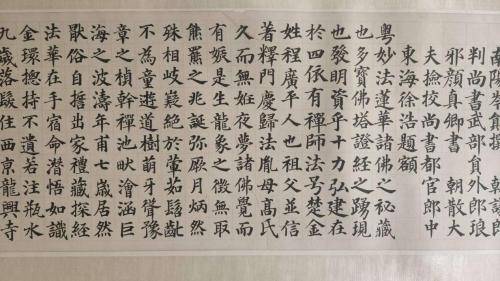 判尚書武部員外郎琅
邪顏真卿書 朝散大
夫撿挍尚書都官郎中
東海徐浩題額
粵妙法蓮華諸佛之秘藏
也多寶佛塔證經之踴現
也發明資乎十力弘建在
於四依有禪師法号楚金
姓程廣平人也祖父並信
著釋門慶歸法胤母高氏
久而無姙夜夢諸佛覺而
有娠是生龍象之徵無取
熊羆之兆誕弥厥月炳然
殊相岐嶷絕於葷茹髫齔
不為童遊道樹萌牙聳豫
章之楨幹禪池畎澮涵巨
海之波濤年甫七歲居然
猒俗自誓出家禮藏探經
法華在手宿命潛悟如識
金環揔持不遺若注瓶水
九歲落髮住西京龍興寺